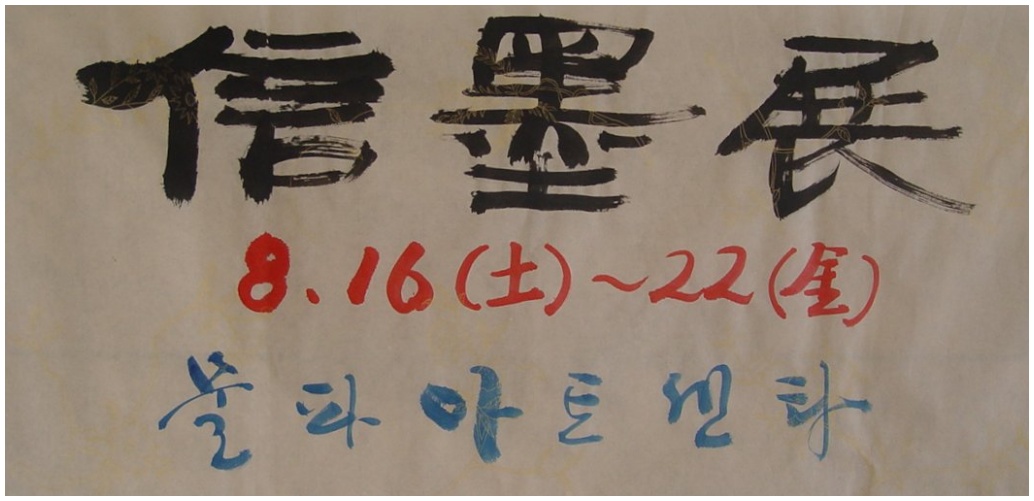 信墨展
8.16(土)~22(金)
물파아트센타